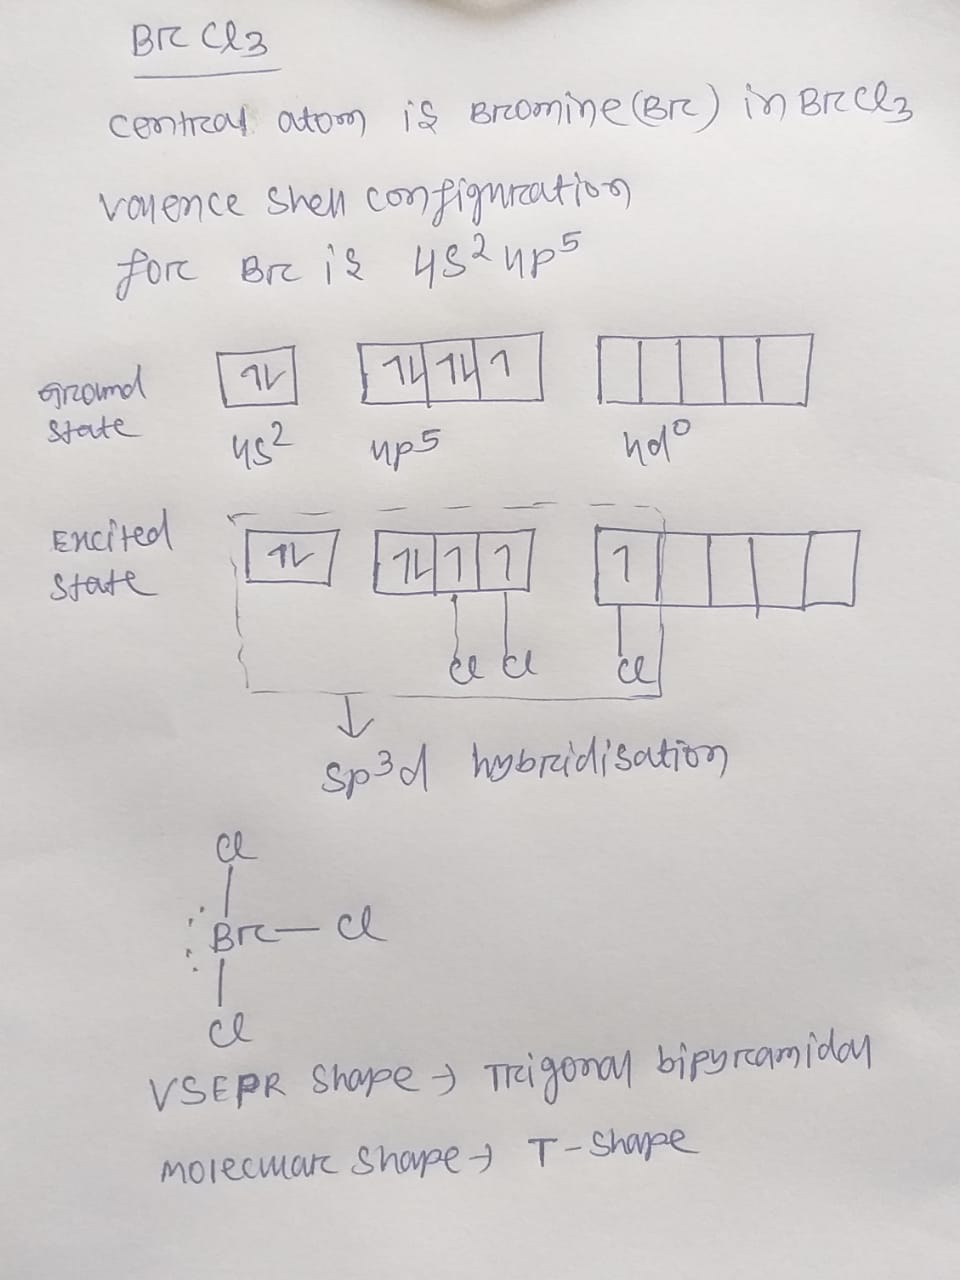 BrCl3
Central atom is Bromine(Br) in BrCl3
Valence shell configuration
for Br is 4s² 4p⁵
Ground state
1L
1L 1L 1
4s²
4p⁵
4d⁰
Excited state
1L
1L 1 1
1
Cl Cl
Cl
↓
sp³d hybridisation
Cl
:Br—Cl
Cl
VSEPR shape → Trigonal bipyramidal
Molecular shape → T-shape